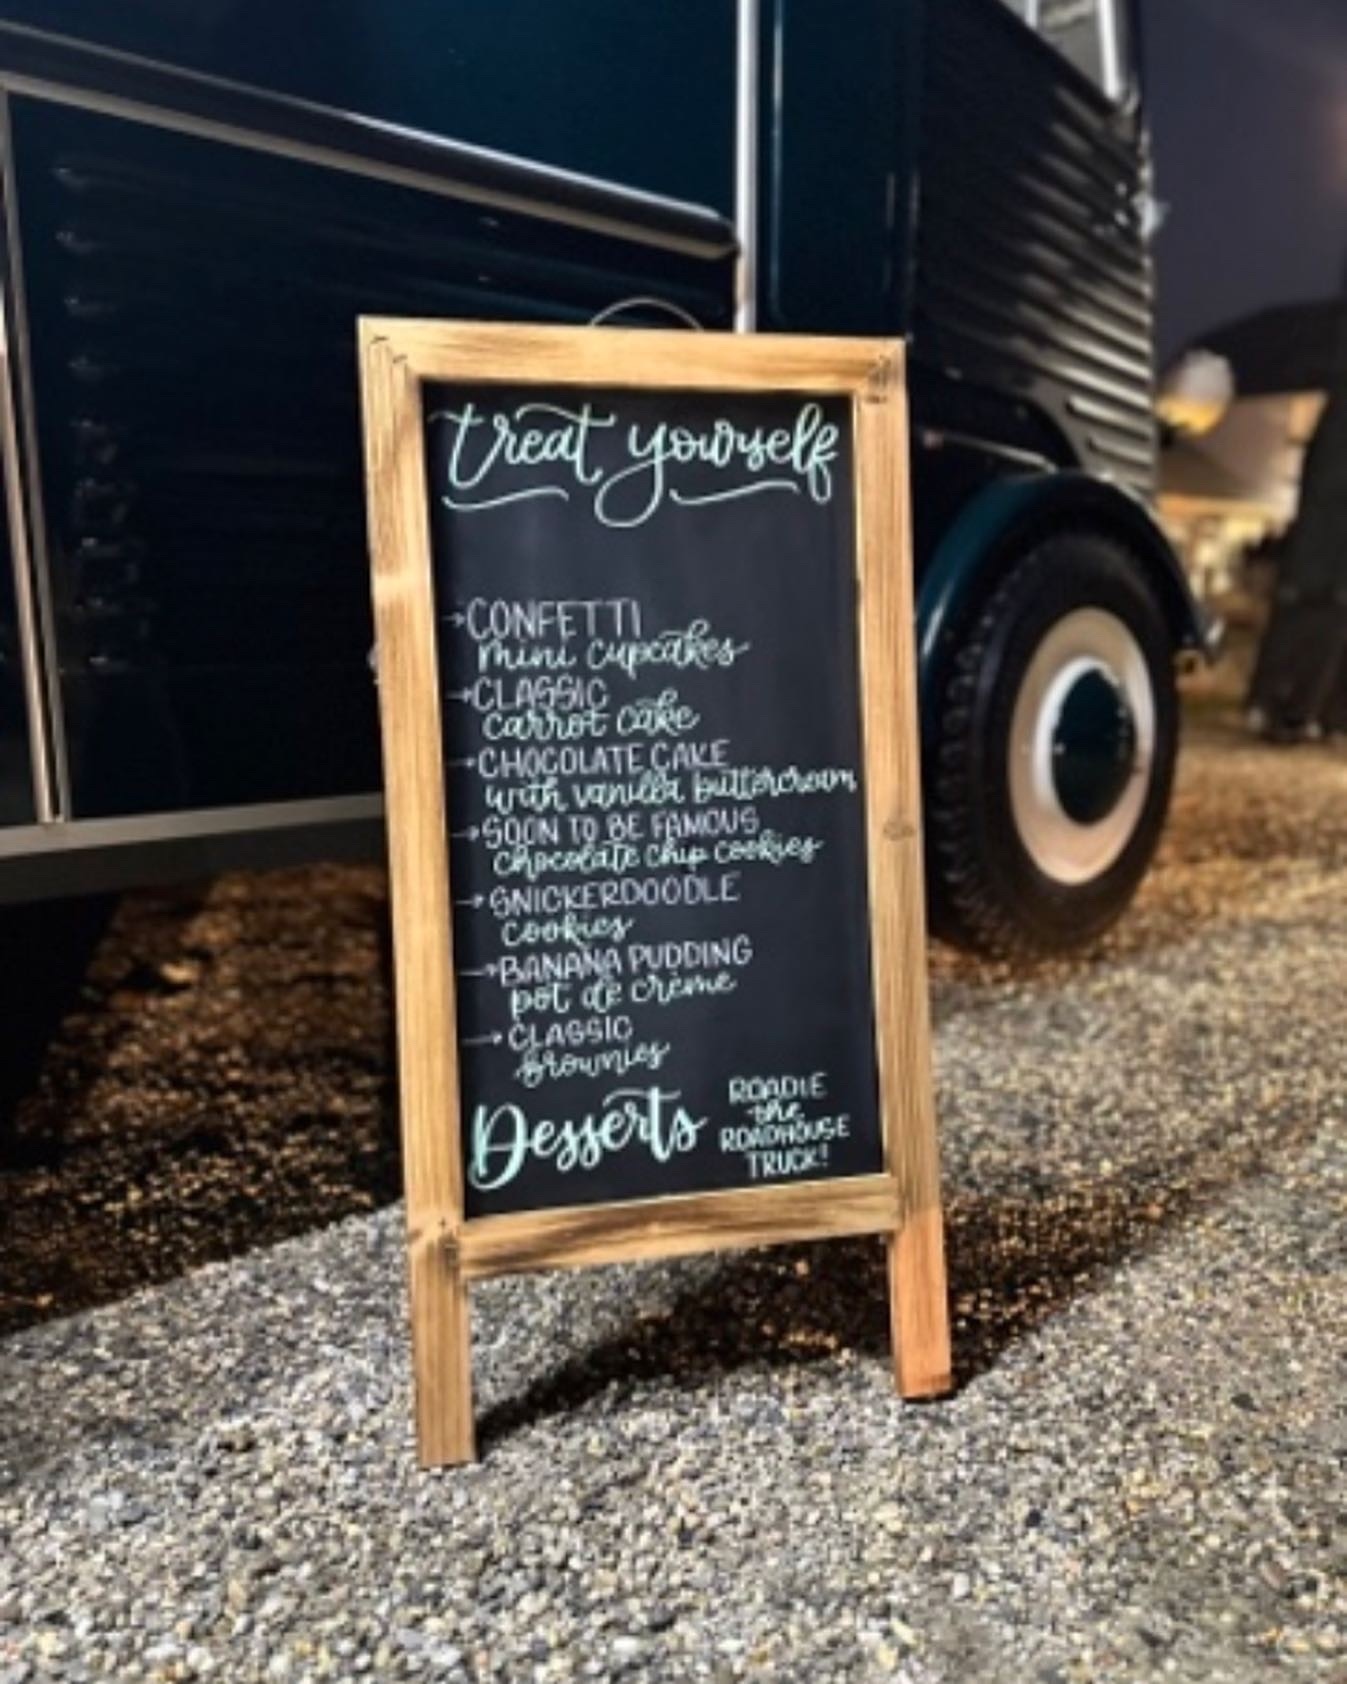 treat yourself
→CONFETTI
mini cupcakes
→CLASSIC
carrot cake
→CHOCOLATE CAKE
with vanilla buttercream
→SOON TO BE FAMOUS
chocolate chip cookies
→SNICKERDOODLE
cookies
→BANANA PUDDING
pot de crème
→CLASSIC
brownies
Desserts
ROADIE
the
ROADHOUSE
TRUCK!